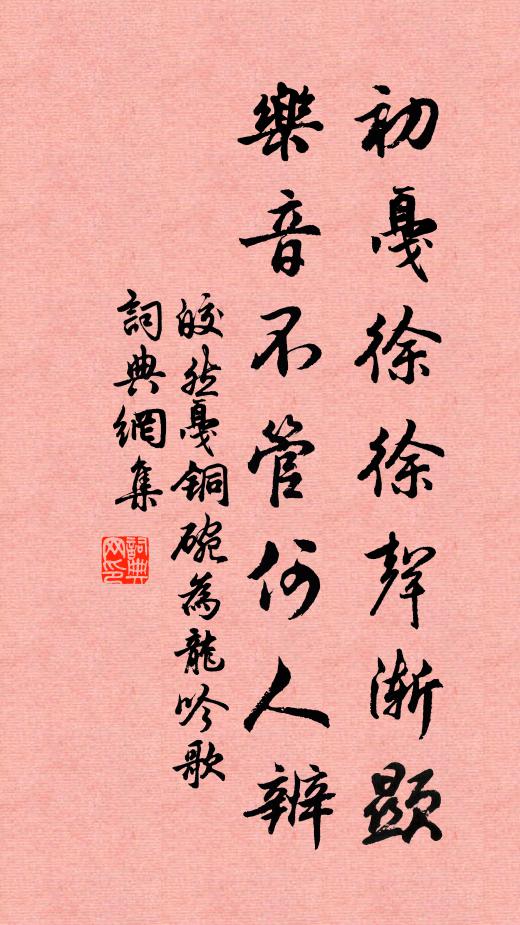 初戛徐徐聲漸顯
樂音不管何人辨
皎然戛铜碗為龍吟歌
詞典網集
詞典
网印